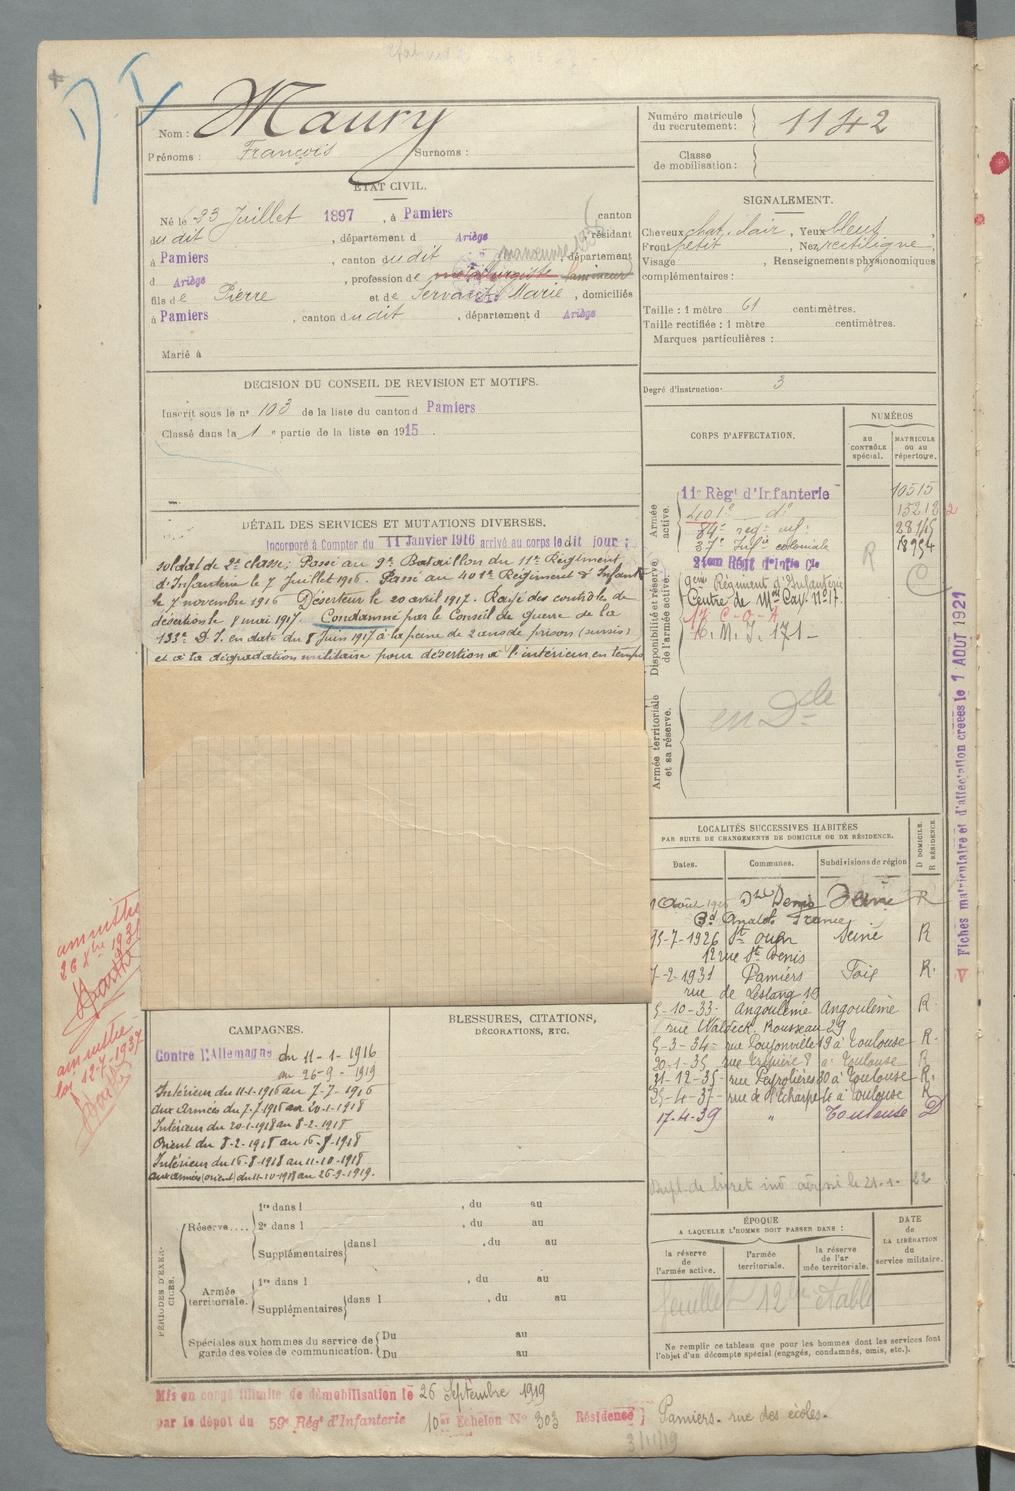 D. I.
Nom : Maury
Prénoms : François Surnoms :
Numéro matricule du recrutement : 1142
Classe de mobilisation :
ÉTAT CIVIL.
Né le 23 Juillet 1897, à Pamiers canton
su dit, département d Ariège résidant
à Pamiers, canton su dit manoeuvre 1936, département
d Ariège, profession de métallurgiste lamineur
fils de Pierre et de Servant Marie, domiciliés
à Pamiers, canton du dit, département d Ariège
Marié à
SIGNALEMENT.
Cheveux chat. clair, Yeux bleus,
Front petit, Nez rectiligne,
Visage , Renseignements physionomiques
complémentaires :
Taille : 1 mètre 61 centimètres.
Taille rectifiée : 1 mètre centimètres.
Marques particulières :
Degré d'instruction. 3
DECISION DU CONSEIL DE REVISION ET MOTIFS.
Inscrit sous le n° 103 de la liste du canton d Pamiers
Classé dans la 1 e partie de la liste en 1915.
CORPS D'AFFECTATION.
NUMÉROS
au CONTRÔLE spécial.
MATRICULE OU AU répertoire.
Armée active.
11e Régt d'Infanterie 10515
401e do 15212
84e reg. inf.
37e Infie coloniale
Disponibilité et réserve de l'armée active.
21em Régt d'infie Cle
9eme Régiment d'Infanterie
Centre de Mon Cav. N° 17.
17 C-O-A
R
C
Armée territoriale et sa réserve.
en Dle
DÉTAIL DES SERVICES ET MUTATIONS DIVERSES.
Incorporé à Compter du 11 Janvier 1916 arrivé au corps le dit jour ;
soldat de 2e classe; Passé au 9e Bataillon du 11e Régiment
d'Infanterie le 7 Juillet 1916. Passé au 401e Régiment d'Infant
le 7 novembre 1916 Déserteur le 20 avril 1917. Rayé des contrôle de
désertion le 8 mai 1917. Condamné par le Conseil de guerre de la
133e D. I. en date du 8 Juin 1917 à la peine de 2 ans de prison (sursis)
et à la dégradation militaire pour désertion à l'intérieur en temps
Fiches matriculaire et d'affectation creees le 1 AOUT 1921
LOCALITÉS SUCCESSIVES HABITÉES
PAR SUITE DE CHANGEMENTS DE DOMICILE OU DE RÉSIDENCE.
D DOMICILE. R RÉSIDENCE
Dates. Communes. Subdivisions de région
St Denis Seine R
Bd Anatole France
15-7-1926 St Ouen Seine R
12 rue St Denis
7-2-1931 Pamiers Foix R.
rue de Lestang 19
5-10-33- Angoulême Angoulême R.
rue Waldeck-Rousseau 29
5-3-34- 19 à Toulouse R.
20-1-35 à Toulouse R
21-12-35- rue Peyrolières 30 à Toulouse R.
25-4-37- rue de l'Echarpe 4 à Toulouse R
17-4-39 " Toulouse D
amnistie
amnistie
loi 12-7-1937
CAMPAGNES.
Contre l'Allemagne du 11-1-1916
au 26-9-1919
Intérieur du 11-1-1916 au 7-7-1916
aux Armées du 7-7-1916 au 20-1-1918
Intérieur du 20-1-1918 au 8-2-1918
Orient du 8-2-1918 au 16-8-1918
Intérieur du 16-8-1918 au 11-10-1918
aux armées (orient) du 11-10-1918 au 26-9-1919.
BLESSURES, CITATIONS,
DÉCORATIONS, ETC.
PÉRIODES D'EXERCICES.
Réserve....
1re dans l , du au
2e dans l , du au
Supplémentaires dans l , du au
Armée territoriale.
1re dans l , du au
Supplémentaires dans l , du au
Spéciales aux hommes du service de garde des voies de communication.
Du au
Du au
Dupl. de livret ind adressé le 21-1-22
ÉPOQUE
A LAQUELLE L'HOMME DOIT PASSER DANS :
la réserve de l'armée active.
l'armée territoriale.
la réserve de l'armée territoriale.
DATE de LA LIBÉRATION du service militaire.
feuillet 12 établi
Ne remplir ce tableau que pour les hommes dont les services font
l'objet d'un décompte spécial (engagés, condamnés, omis, etc.).
Mis en congé illimité de démobilisation le 26 Septembre 1919
par le dépôt du 59e Régt d'Infanterie 10em Echelon N° 303 Résidence } Pamiers. rue des écoles.
3/11/19